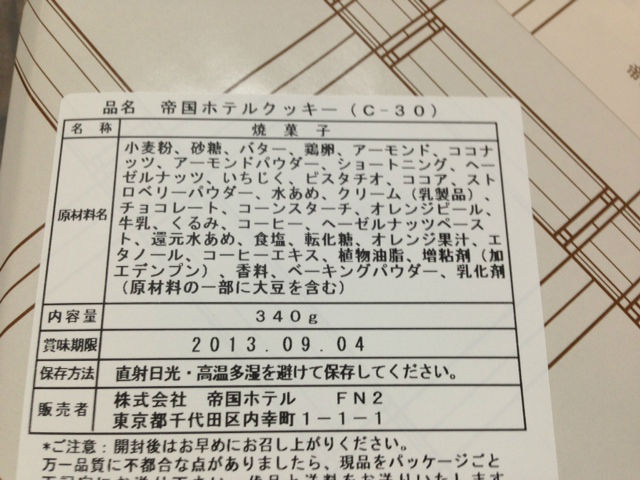 品名 帝国ホテルクッキー(C-30)
名 称 焼 菓 子
原材料名 小麦粉、砂糖、バター、鶏卵、アーモンド、ココナ
ッツ、アーモンドパウダー、ショートニング、ヘー
ゼルナッツ、いちじく、ピスタチオ、ココア、スト
ロベリーパウダー、水あめ、クリーム(乳製品)、
チョコレート、コーンスターチ、オレンジピール、
牛乳、くるみ、コーヒー、ヘーゼルナッツペース
ト、還元水あめ、食塩、転化糖、オレンジ果汁、エ
タノール、コーヒーエキス、植物油脂、増粘剤(加
工デンプン)、香料、ベーキングパウダー、乳化剤
(原材料の一部に大豆を含む)
内容量 340g
賞味期限 2013.09.04
保存方法 直射日光・高温多湿を避けて保存してください。
販売者 株式会社 帝国ホテル FN2
東京都千代田区内幸町1-1-1
*ご注意:開封後はお早めにお召し上がりください。
万一品質に不都合な点がありましたら、現品をパッケージごと